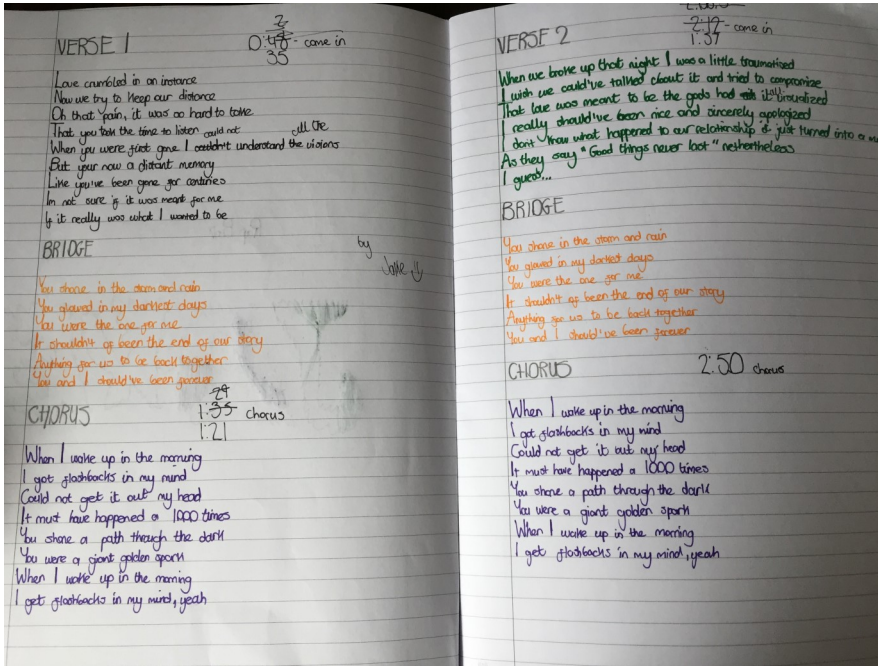 VERSE 1
2
0:48 - come in
35
Love crumbled in an instance
Now we try to keep our distance
Oh that pain, it was so hard to take
That you took the time to listen could not
all the
When you were first gone I couldn't understand the visions
But your now a distant memory
Like you've been gone for centuries
Im not sure if it was meant for me
If it really was what I wanted to be
BRIDGE
by
Jake
You shone in the storm and rain
You glowed in my darkest days
You were the one for me
It shouldn't of been the end of our story
Anything for us to be back together
You and I should've been forever
29
CHORUS 1:35 chorus
1:21
When I wake up in the morning
I got flashbacks in my mind
Could not get it out my head
It must have happened a 1000 times
You shone a path through the dark
You were a giant golden spark
When I wake up in the morning
I get flashbacks in my mind, yeah
2:19 - come in
VERSE 2 1:37
When we broke up that night I was a little traumatised
I wish we could've talked about it and tried to compromize
That love was meant to be the gods had it all visualized
I really should've been nice and sincerely apologized
I dont know what happened to our relationship it just turned into a
As they say "Good things never last" neshertheless
I guess...
BRIDGE
You shone in the storm and rain
You glowed in my darkest days
You were the one for me
It shouldn't of been the end of our story
Anything for us to be back together
You and I should've been forever
CHORUS 2:50 chorus
When I wake up in the morning
I got flashbacks in my mind
Could not get it out my head
It must have happened a 1000 times
You shone a path through the dark
You were a giant golden spark
When I wake up in the morning
I get flashbacks in my mind, yeah